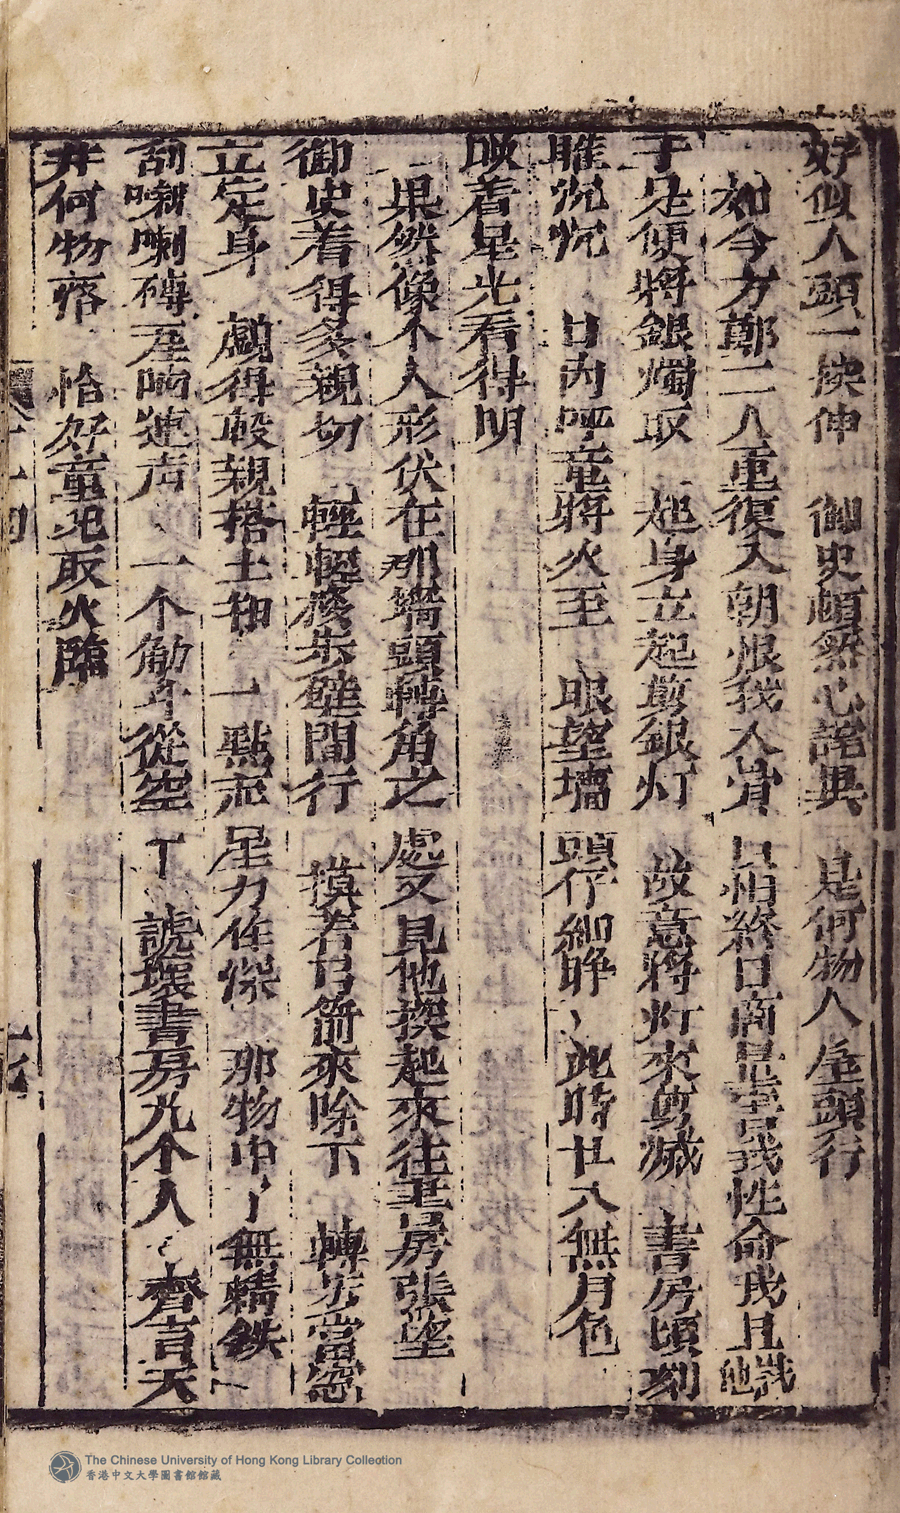 好似人頭一挾伸 御史頗然心詫異 是何物人屋頭行
如今方鄭二人重復入朝恨我入骨 只怕終日商量害我性命我且戲他
于是便將銀燭取 起身立起剪銀灯 故意將灯來剪滅 書房頃刻
黑沉沉 口內呼童將火至 眼望墻頭仔細睁 此時廿八無月色
映着星光看得明
果然像个人形伏在那墻頭轉角之處又見他揬起來往書房張望
御史着得多親切 輕輕移步壁間行 摸着弓箭來除下 轉步當窓
立定身 覷得較親搭上和 一點起足力在深 那物中了無精鉄
刮喇喇磚屋响連声 一个觔斗從空丁 諕壞書房几个人 齊言天
井何物落 恰好童兒取火臨